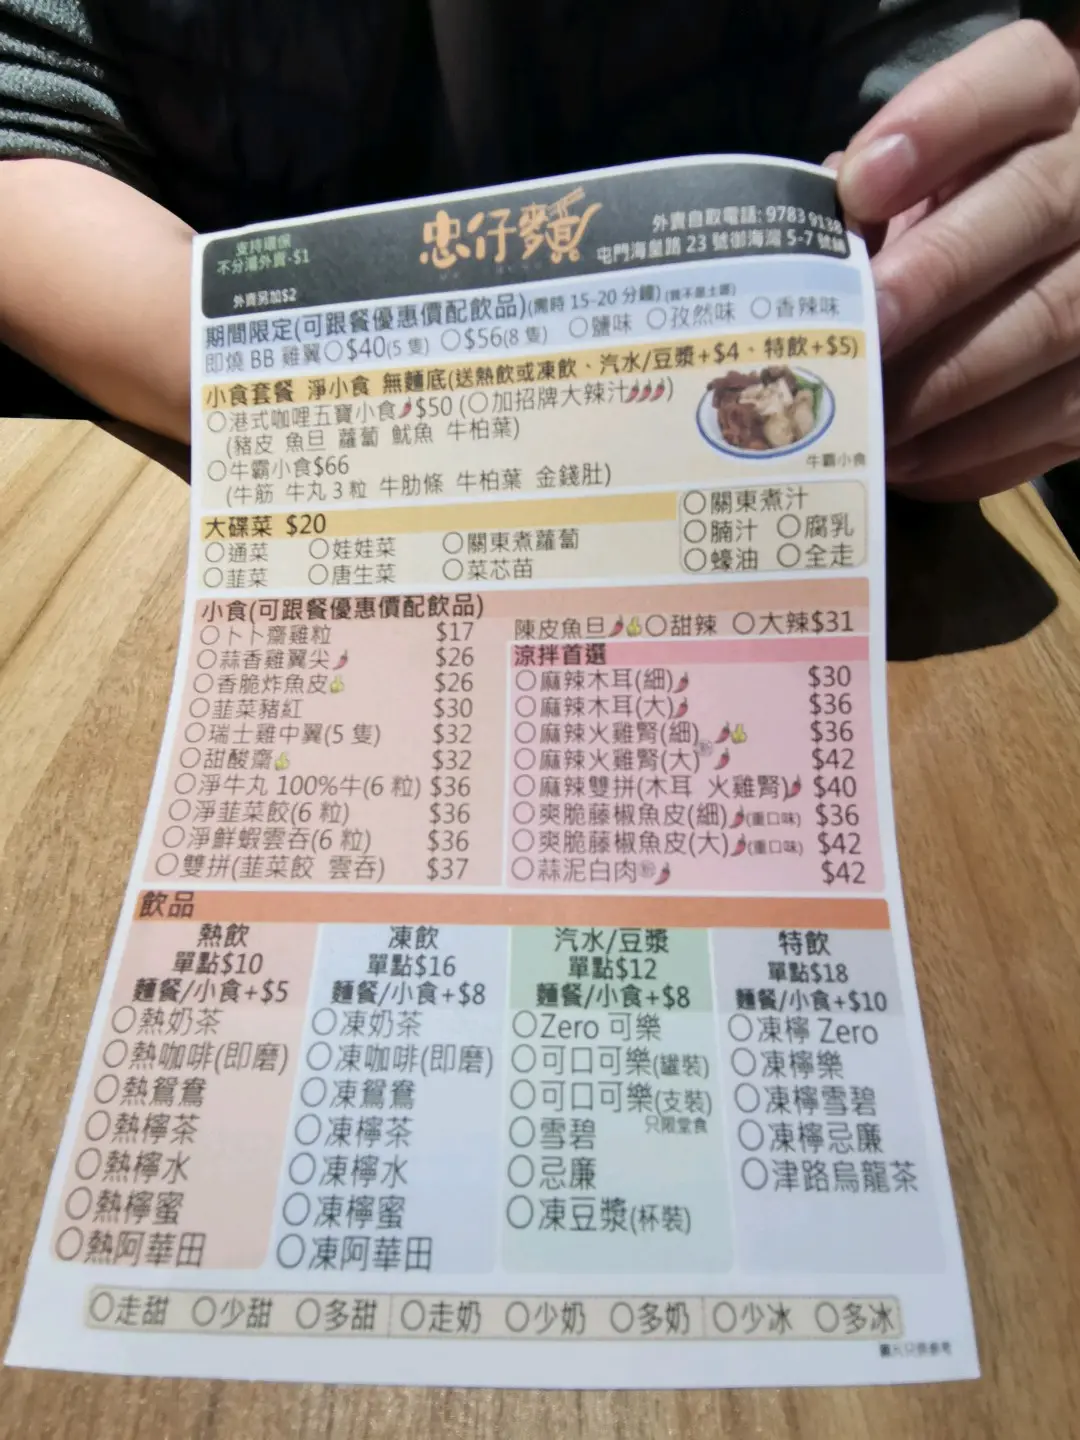 支持環保
不分湯外賣-$1
外賣另加$2
忠仔麵
外賣自取電話: 9783 9138
屯門海皇路 23 號御海灣 5-7 號舖
期間限定(可跟餐優惠價配飲品)(需時 15-20 分鐘)
即燒 BB 雞翼○$40(5 隻) ○$56(8 隻) ○鹽味 ○孜然味 ○香辣味
小食套餐 淨小食 無麵底(送熱飲或凍飲、汽水/豆漿+$4、特飲+$5)
○港式咖哩五寶小食$50 (○加招牌大辣汁)
(豬皮 魚旦 蘿蔔 魷魚 牛柏葉)
○牛霸小食$66
(牛筋 牛丸 3 粒 牛肋條 牛柏葉 金錢肚)
牛霸小食
大碟菜 $20
○通菜 ○娃娃菜 ○關東煮蘿蔔
○韮菜 ○唐生菜 ○菜芯苗
○關東煮汁
○腩汁 ○腐乳
○蠔油 ○全走
小食(可跟餐優惠價配飲品)
○卜卜齋雞粒 $17
○蒜香雞翼尖 $26
○香脆炸魚皮 $26
○韮菜豬紅 $30
○瑞士雞中翼(5 隻) $32
○甜酸齋 $32
○淨牛丸 100%牛(6 粒) $36
○淨韮菜餃(6 粒) $36
○淨鮮蝦雲吞(6 粒) $36
○雙拼(韮菜餃 雲吞) $37
陳皮魚旦 ○甜辣 ○大辣$31
涼拌首選
○麻辣木耳(細) $30
○麻辣木耳(大) $36
○麻辣火雞腎(細) $36
○麻辣火雞腎(大) $42
○麻辣雙拼(木耳 火雞腎) $40
○爽脆藤椒魚皮(細)(重口味) $36
○爽脆藤椒魚皮(大)(重口味) $42
○蒜泥白肉 $42
飲品
熱飲
單點$10
麵餐/小食+$5
○熱奶茶
○熱咖啡(即磨)
○熱鴛鴦
○熱檸茶
○熱檸水
○熱檸蜜
○熱阿華田
凍飲
單點$16
麵餐/小食+$8
○凍奶茶
○凍咖啡(即磨)
○凍鴛鴦
○凍檸茶
○凍檸水
○凍檸蜜
○凍阿華田
汽水/豆漿
單點$12
麵餐/小食+$8
○Zero 可樂
○可口可樂(罐裝)
○可口可樂(支裝)
只限堂食
○雪碧
○忌廉
○凍豆漿(杯裝)
特飲
單點$18
麵餐/小食+$10
○凍檸 Zero
○凍檸樂
○凍檸雪碧
○凍檸忌廉
○津路烏龍茶
○走甜 ○少甜 ○多甜 ○走奶 ○少奶 ○多奶 ○少冰 ○多冰
圖片只供參考